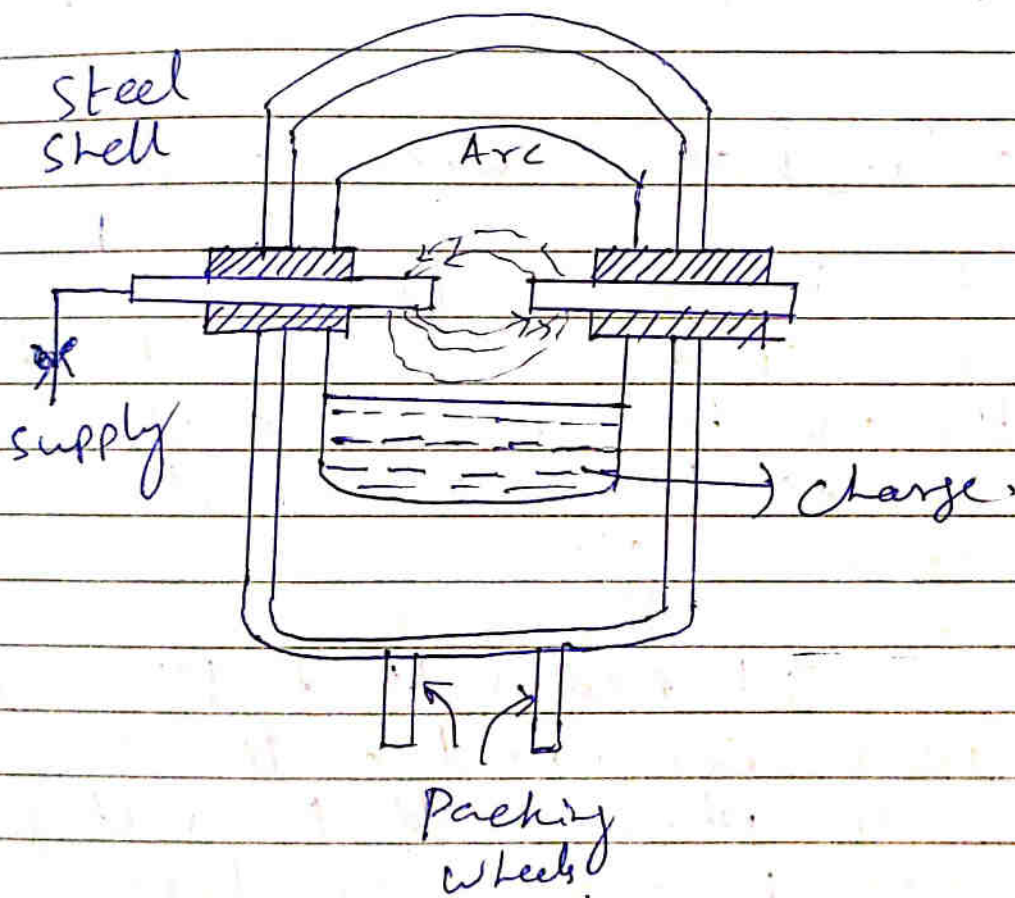 Steel
Shell
Arc
supply
Charge.
Packing
wheels